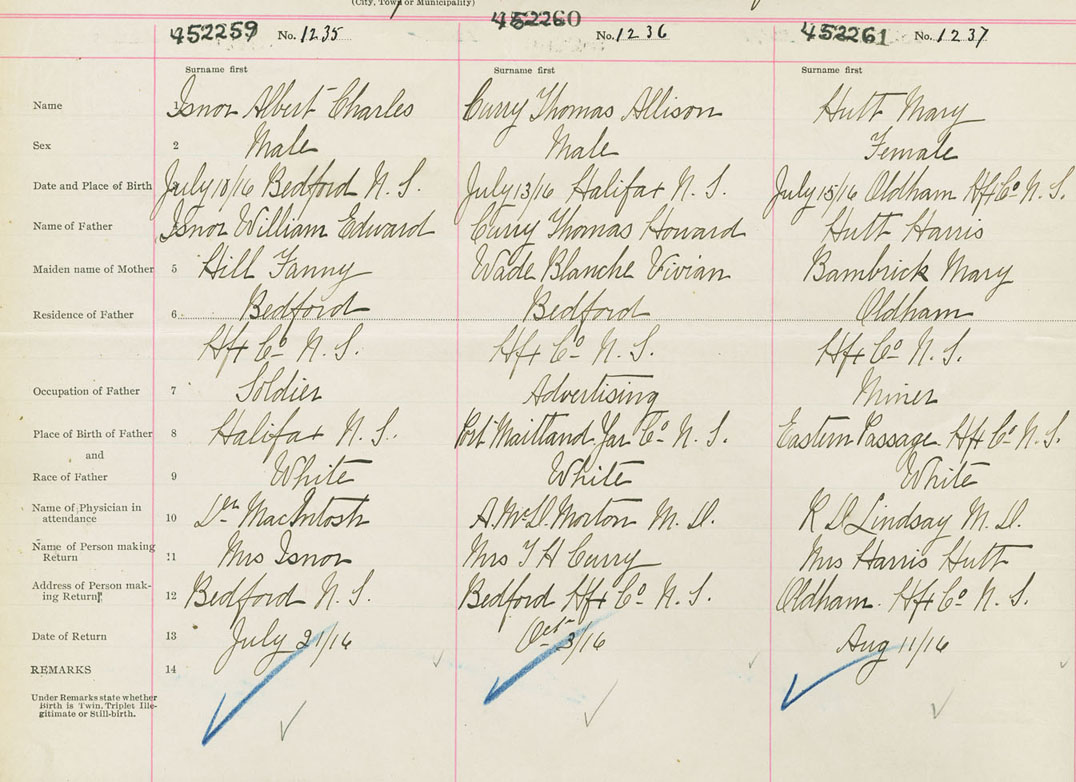 (City, Town or Municipality)
452259 No. 1235 452260 No. 1236 452261 No. 1237
Surname first Surname first Surname first
Name 1 Isnor Albert Charles Curry Thomas Allison Hutt Mary
Sex 2 Male Male Female
Date and Place of Birth July 18/16 Bedford N. S. July 13/16 Halifax N. S. July 15/16 Oldham Hfx Co N. S.
Name of Father Isnor William Edward Curry Thomas Howard Hutt Harris
Maiden name of Mother 5 Hill Fanny Wade Blanche Vivian Bambrick Mary
Residence of Father 6 Bedford Bedford Oldham
Hfx Co N. S. Hfx Co N. S. Hfx Co N. S.
Occupation of Father 7 Soldier Advertising Miner
Place of Birth of Father 8 Halifax N. S. Port Maitland Yar Co N. S. Eastern Passage Hfx Co N. S.
and
Race of Father 9 White White White
Name of Physician in
attendance 10 Dr MacIntosh A. McD. Morton M. D. R D Lindsay M. D.
Name of Person making
Return 11 Mrs Isnor Mrs T H Curry Mrs Harris Hutt
Address of Person mak-
ing Return 12 Bedford N. S. Bedford Hfx Co N. S. Oldham Hfx Co N. S.
Date of Return 13 July 21/16 Oct 3/16 Aug 11/16
REMARKS 14
Under Remarks state whether
Birth is Twin, Triplet Ille-
gitimate or Still-birth.